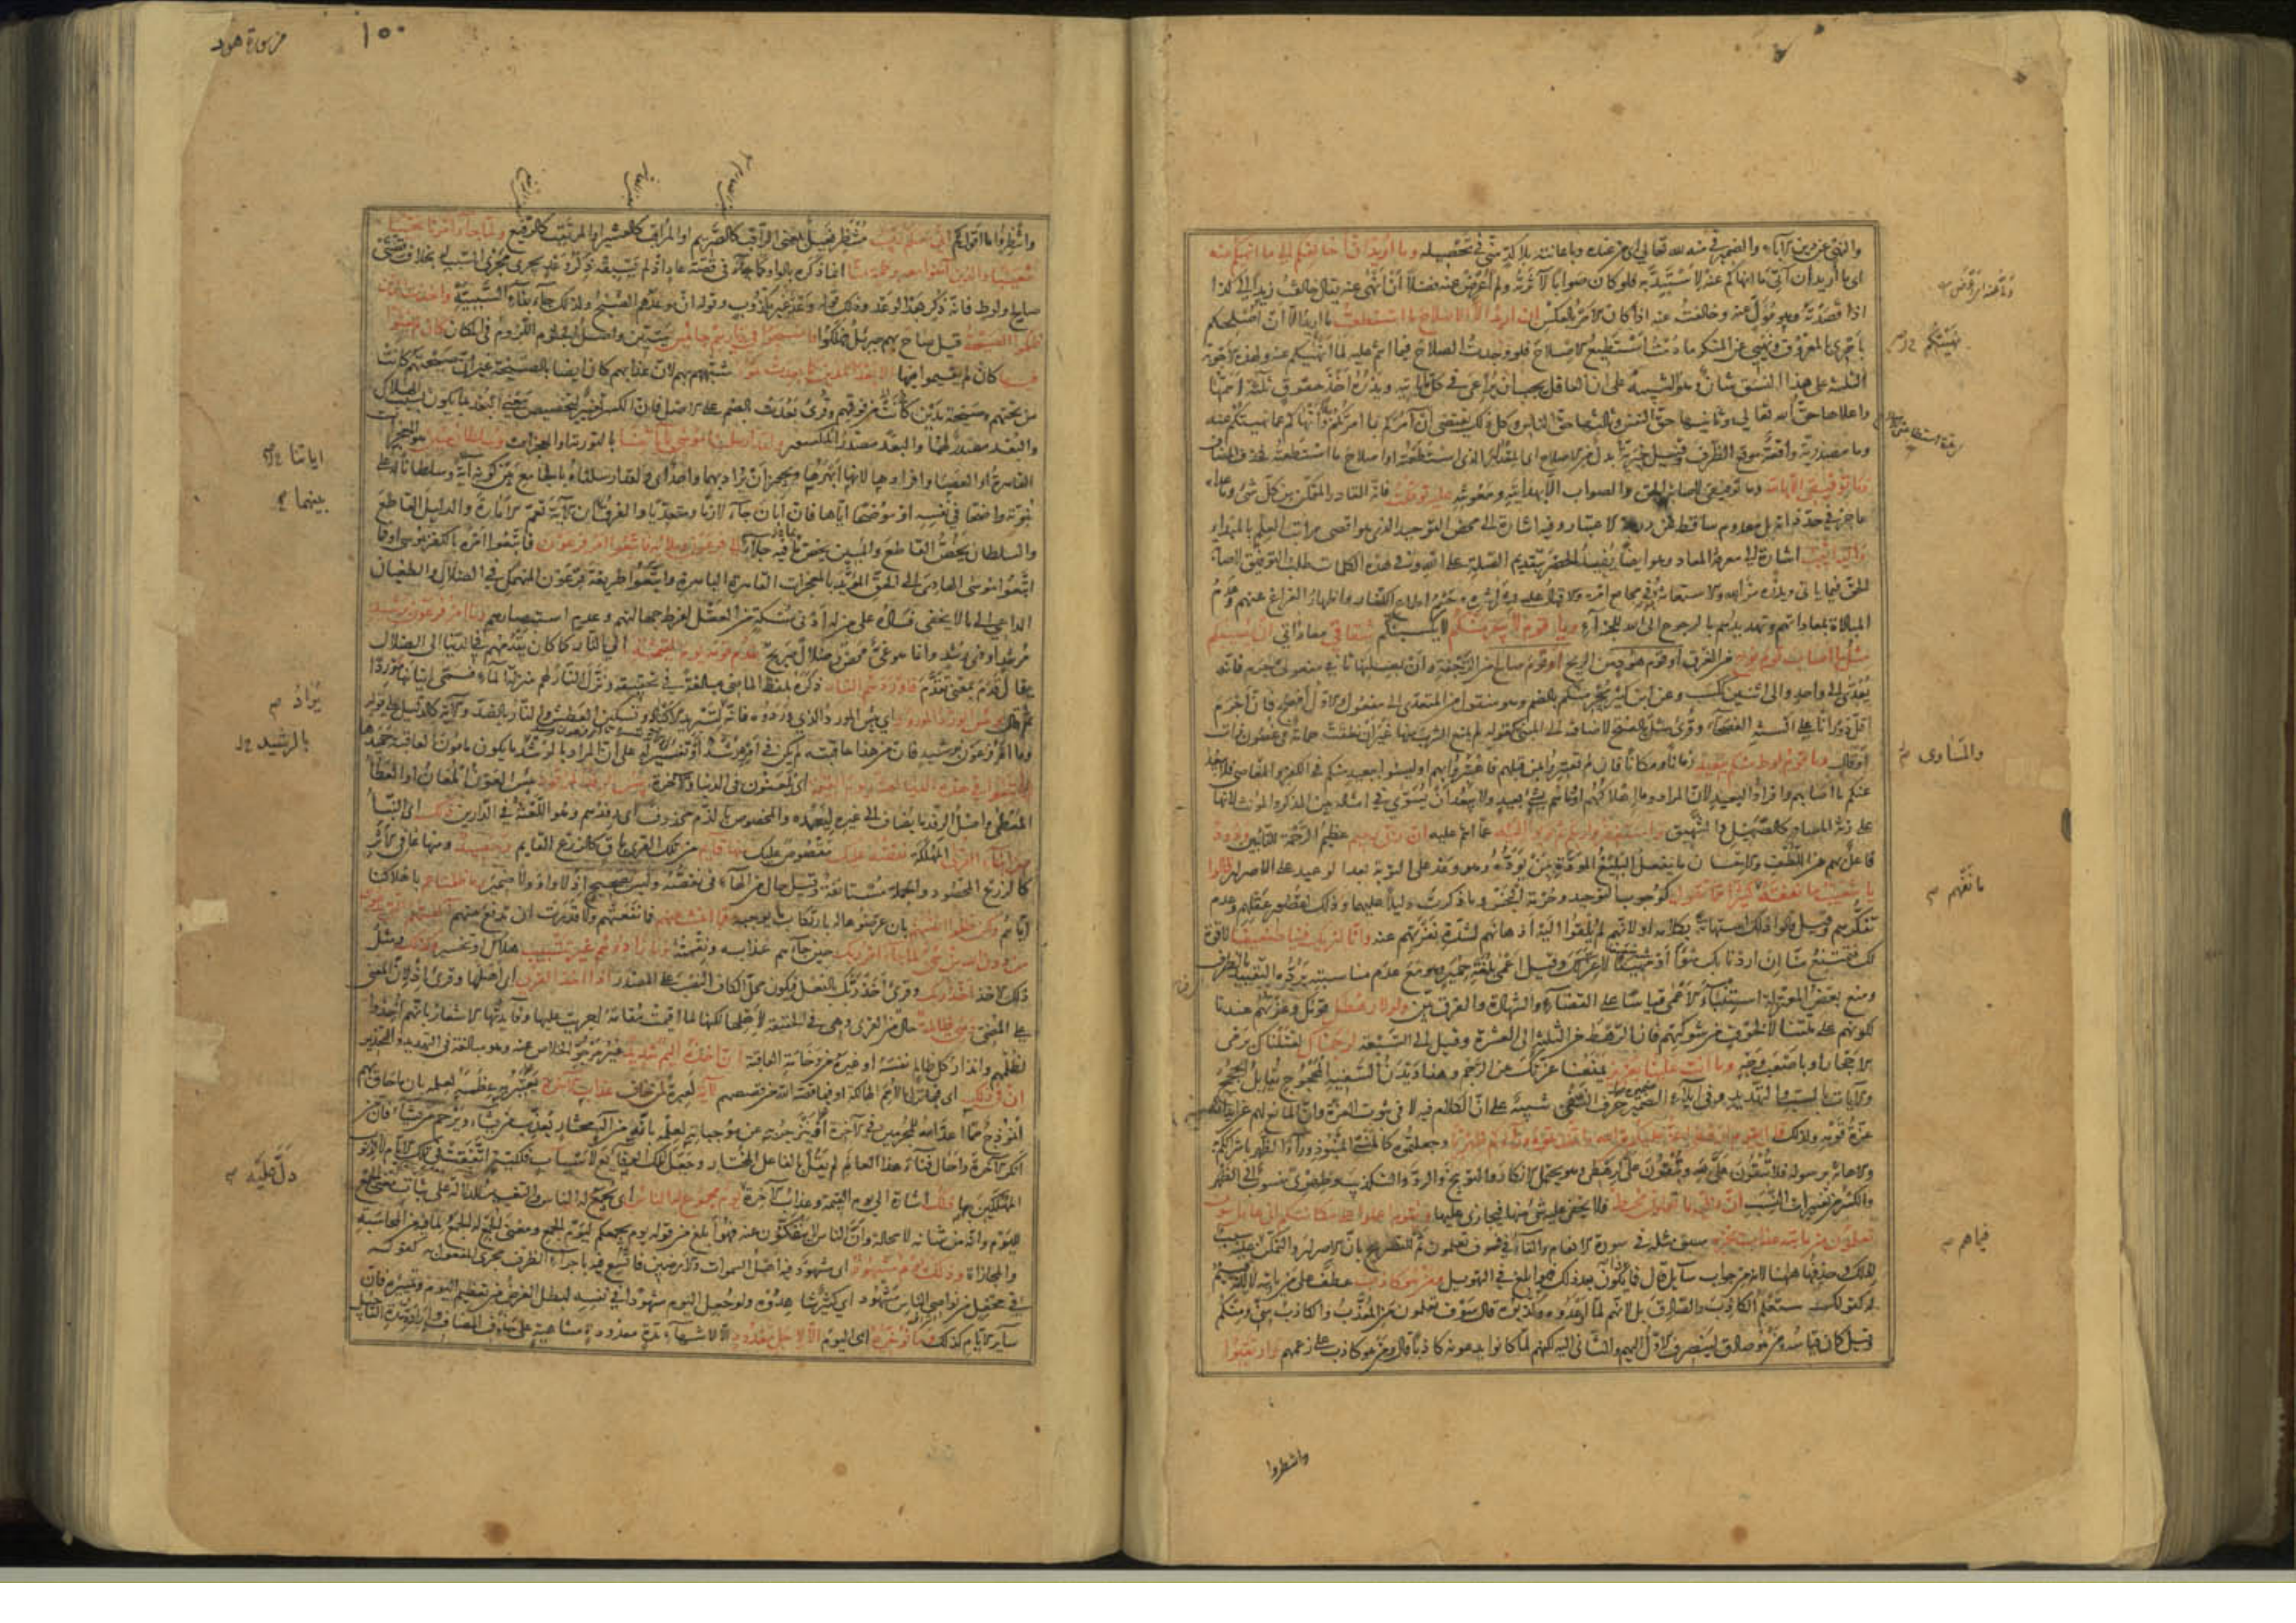 والنهي عن دين الآباء والضمير في منه لله تعالى اي من عنده وباعانته بلا كد مني في تحصيله وما اريد ان اخالفكم الى ما انهيكم عنه
اى ما اريد ان آتى ما انهاكم عنه لاستبد به فلو كان صوابا لآثرته ولم اعرض عنه فضلا ان انهى عنه يقال خالفت زيدا الى كذا
اذا قصدته وهو مول عنه وخالفته عنه اذا كان الامر بالعكس ان اريد الا الاصلاح ما استطعت ما اريد الا ان اصلحكم
بامرى بالمعروف ونهيي عن المنكر ما دمت استطيع الاصلاح فلو وجدت الصلاح فيما انتم عليه لما انهيكم عنه ولهذه الاجوبة
الثلثة على هذا النسق شان وهو التنبيه على ان العاقل يجب ان يراعى في كل ما ياتيه ويذره احد حقوق ثلثة اهمها
واعلاها حق الله تعالى وثانيها حق النفس وثالثها حق الناس وكل ذلك يقتضى ان آمركم بما امرتكم به وانهاكم عما نهيتكم عنه
وما مصدرية واقعة موقع الظرف وقيل خبرية بدل من الاصلاح اى المقدار الذى استطعته او اصلاح ما استطعته فحذف المضاف
وما توفيقى الا بالله وما توفيقى لاصابة الحق والصواب الا بهدايته ومعونته عليه توكلت فانه القادر المتمكن من كل شئ وما عداه
عاجز في حد ذاته بل معدوم ساقط عن درجة الاعتبار وفيه اشارة الى محض التوحيد الذى هو اقصى مراتب العلم بالمبداء
واليه انيب اشارة الى معرفة المعاد وهو ايضا يفيد الحصر بتقديم الصلة على انيب وفي هذه الكلمات طلب التوفيق لاصابة
الحق فيما ياتى ويذره من الله والاستعانة به في مجامع امره والاقبال عليه بشراشره وحسم اطماع الكفار واظهار الفراغ عنهم وعدم
المبالاة بمعاداتهم وتهديدهم بالرجوع الى الله للجزاء ويا قوم لا يجرمنكم لا يكسبنكم شقاقى معاداتى ان يصيبكم
مثل ما اصاب قوم نوح من الغرق او قوم هود من الريح او قوم صالح من الرجفة وان بصلتها ثاني مفعولى جرم فانه
يعدى الى واحد والى اثنين ككسب وعن ابن كثير يجرمنكم بالضم وهو منقول من المتعدى الى مفعول والاول افصح فان اجرم
اقل دورانا على السنة الفصحاء وقرئ مثل بالفتح لاضافته الى المبنى كقوله لم يمنع الشرب منها غير ان نطقت حمامة في غصون ذات
اوقال وما قوم لوط منكم ببعيد زمانا او مكانا فان لم تعتبروا بمن قبلهم فاعتبروا بهم او ليسوا ببعيد منكم في الكفر والمساوى فلا يبعد
عنكم ما اصابهم وافراد البعيد لان المراد وما اهلاكهم او ما هم بشئ بعيد ولا يبعد ان يسوى في امثاله بين المذكر والمؤنث لانها
على زنة المصادر كالصهيل والشهيق واستغفروا ربكم ثم توبوا اليه عما انتم عليه ان ربى رحيم عظيم الرحمة للتائبين ودود
فاعل بهم من اللطف والاحسان ما يفعل البليغ المودة بمن يوده وهو وعد على التوبة بعد الوعيد على الاصرار قالوا
يا شعيب ما نفقه كثيرا مما تقول كوجوب التوحيد وحرمة البخس وما ذكرت دليلا عليهما وذلك لقصور عقلهم وعدم
تفكرهم وقيل قالوا ذلك استهانة بكلامه او لانهم لم يلقوا اليه اذهانهم لشدة نفرتهم عنه وانا لنريك فينا ضعيفا لا قوة
لك فتمتنع منا ان اردنا بك سوءا او مهينا لا عز لك وقيل اعمى بلغة حمير وهو مع عدم مناسبته يرده التقييد بالظرف
ومنع بعض المعتزلة استنباء الاعمى قياسا على القضاء والشهادة والفرق بين ولولا رهطك قومك وعزتهم عندنا
لكونهم على ملتنا لا لخوف من شوكتهم فان الرهط من الثلثة الى العشرة وقيل الى التسعة لرجمناك لقتلناك برمى
الاحجار او باصعب وجه وما انت علينا بعزيز فتمنعنا عزتك عن الرجم وهذا ديدن السفيه المحجوج يقابل الحجج
والآيات بالسب والتهديد وفي ايلاء الضمير حرف النفي تنبيه على ان الكلام فيه لا في ثبوت العزة وان المانع لهم عن ايذائه
عزة قومه ولذلك قال يا قوم ارهطى اعز عليكم من الله واتخذتموه وراءكم ظهريا وجعلتموه كالمنسى المنبوذ وراء الظهر باشراككم به
والاهانة برسوله فلا تبقون على لله وتبقون على لرهطى وهو يحتمل الانكار والتوبيخ والرد والتكذيب وظهرى منسوب الى الظهر
والكسر من تغييرات النسب ان ربى بما تعملون محيط فلا يخفى عليه شئ منها فيجازى عليها ويا قوم اعملوا على مكانتكم انى عامل سوف
تعلمون من ياتيه عذاب يخزيه سبق مثله في سورة الانعام والفاء في فسوف تعلمون ثمة للتصريح بان الاصرار والتمكن فيما هم عليه سبب
لذلك وحذفها ههنا لانه جواب سائل قال فما ذا يكون بعد ذلك فهو ابلغ في التهويل ومن هو كاذب عطف على من ياتيه لا لانه قسيم
له كقولك ستعلم الكاذب والصادق بل لانهم لما اوعدوه وكذبوه قال سوف تعلمون من المعذب والكاذب منى ومنكم
وقيل كان قياسه ومن هو صادق لينصرف الاول اليهم والثاني اليه لكنهم لما كانوا يدعونه كاذبا قال ومن هو كاذب على زعمهم وارتقبوا
نهيتكم
والمساوى
ما نفهم
فيما هم
وانتظروا
١٠٠
من سورة هود
وانتظروا ما اقول لكم انى معكم رقيب منتظر فعيل بمعنى الراقب كالصريم او المراقب كالعشير او المرتقب كالرفيع ولما جاء امرنا نجينا
شعيبا والذين آمنوا معه برحمة منا انما ذكره بالواو كما جاء في قصة عاد اذ لم يسبقه ذكر وعد يجرى مجرى السبب له بخلاف قصتى
صالح ولوط فانه ذكر بعد الوعد وذلك قوله وعد غير مكذوب وقوله ان موعدهم الصبح ولذلك جاء بفاء السببية واخذت الذين
ظلموا الصيحة قيل صاح بهم جبريل فهلكوا فاصبحوا في ديارهم جاثمين ميتين واصل الجثوم اللزوم في المكان كان لم يغنوا
فيها كان لم يقيموا فيها الا بعدا لمدين كما بعدت ثمود شبههم بهم لان عذابهم كان ايضا بالصيحة غير ان صيحتهم كانت
من تحتهم وصيحة مدين كانت من فوقهم وقرئ بعدت بالضم على الاصل فان الكسر تغيير لتخصيص معنى البعد بما يكون بسبب الهلاك
والبعد مصدر لهما والبعد مصدر المكسور ولقد ارسلنا موسى بآياتنا بالتورية او المعجزات وسلطان مبين وهو المعجزات
القاهرة او العصا وافرادها لانها ابهرها ويجوز ان يراد بهما واحد اى ولقد ارسلناه بالجامع بين كونه آية وسلطانا له على
نبوته واضحا في نفسه او موضحا اياها فان ابان جاء لازما ومتعديا والفرق بينهما ان الآية تعم الامارة والدليل القاطع
والسلطان يخص القاطع والمبين يخص بما فيه جلاء الى فرعون وملئه فاتبعوا امر فرعون فاتبعوا امره بالكفر بموسى او فما
اتبعوا موسى الهادى الى الحق المؤيد بالمعجزات القاهرة الباهرة واتبعوا طريقة فرعون المنهمك في الضلال والطغيان
الداعى الى ما لا يخفى فساده على من له ادنى مسكة من العقل لفرط جهالتهم وعدم استبصارهم وما امر فرعون برشيد
مرشد او ذى رشد وانما هو غى محض وضلال صريح يقدم قومه يوم القيمة الى النار كما كان يقدمهم في الدنيا الى الضلال
يقال قدم بمعنى تقدم فاوردهم النار ذكره بلفظ الماضى مبالغة في تحقيقه ونزل النار لهم منزلة الماء فسمى اتيانها موردا
ثم قال وبئس الورد المورود اى بئس المورد الذى وردوه فانه يراد لتبريد الاكباد وتسكين العطش والنار بالضد والآية كالدليل على قوله
وما امر فرعون برشيد فان من هذا عاقبته لم يكن في امره رشد او تفسير له على ان المراد بالرشيد ما يكون مامون العاقبة حميدها
واتبعوا في هذه الدنيا لعنة ويوم القيمة اى يلعنون في الدنيا والآخرة بئس الرفد المرفود بئس العون المعان او العطاء
المعطى واصل الرفد ما يضاف الى غيره ليعمده والمخصوص بالذم محذوف اى رفدهم وهو اللعنة في الدارين ذلك اى النبأ
من انباء القرى المهلكة نقصه عليك مقصوص عليك منها قائم من تلك القرى باق كالزرع القايم وحصيد ومنها عافى الاثر
كالزرع المحصود والجملة مستانفة وقيل حال من الهاء في نقصه وليس بصحيح اذ لا واو ولا ضمير وما ظلمناهم باهلاكنا
اياهم ولكن ظلموا انفسهم بان عرضوها له بارتكاب ما يوجبه فما اغنت عنهم فما نفعتهم ولا قدرت ان تدفع عنهم آلهتهم التى يدعون
من دون الله من شئ لما جاء امر ربك حين جاءهم عذابه ونقمته وما زادوهم غير تتبيب هلاك او تخسير وكذلك ومثل
ذلك الاخذ اخذ ربك وقرئ اخذ ربك بالفعل فيكون محل الكاف النصب على المصدر اذا اخذ القرى اى اهلها وقرئ اذ لان المعنى
على المضى وهى ظالمة حال من القرى وهى في الحقيقة لاهلها لكنها لما اقيمت مقامه اجريت عليها وفائدتها الاشعار بانهم اخذوا
لظلمهم وانذار كل ظالم نفسه او غيره من وخامة العاقبة ان اخذه اليم شديد وجيع غير مرجو الخلاص عنه وهو مبالغة في التهديد والتحذير
ان في ذلك اى فيما نزل بالامم الهالكة او فيما قصه الله من قصصهم لآية لعبرة لمن خاف عذاب الآخرة يعتبر به عظة لعلمه بان ما حاق بهم
انموذج مما اعد الله للمجرمين في الآخرة او ينزجر به عن موجباته لعلمه بانه من اله مختار يعذب من يشاء ويرحم من يشاء فان من
انكر الآخرة واحال فناء هذا العالم لم يقل بالفاعل المختار وجعل تلك الوقايع لاسباب فلكية اتفقت في تلك الايام لا لذنوب
المهلكين بها ذلك اشارة الى يوم القيمة وعذاب الآخرة يوم مجموع له الناس اى يجمع له الناس والتغيير للدلالة على ثبات معنى الجمع
لليوم وانه من شانه لا محالة وان الناس لا ينفكون عنه فهو ابلغ من قوله يوم يجمعكم ليوم الجمع ومعنى الجمع له الجمع لما فيه من المحاسبة
والمجازاة وذلك يوم مشهود اى مشهود فيه اهل السموات والارضين فاتسع فيه باجراء الظرف مجرى المفعول به كقوله
في محفل من نواصى الناس مشهود اى كثير شاهدوه ولو جعل اليوم مشهودا في نفسه لبطل الغرض من تعظيم اليوم وتمييزه فان
سائر الايام كذلك وما نؤخره اى اليوم الا لاجل معدود الا لانتهاء مدة معدودة متناهية على حذف المضاف وارادة مدة التاجيل
اياتنا
بينهما
يراد
بالرشيد
دل عليه